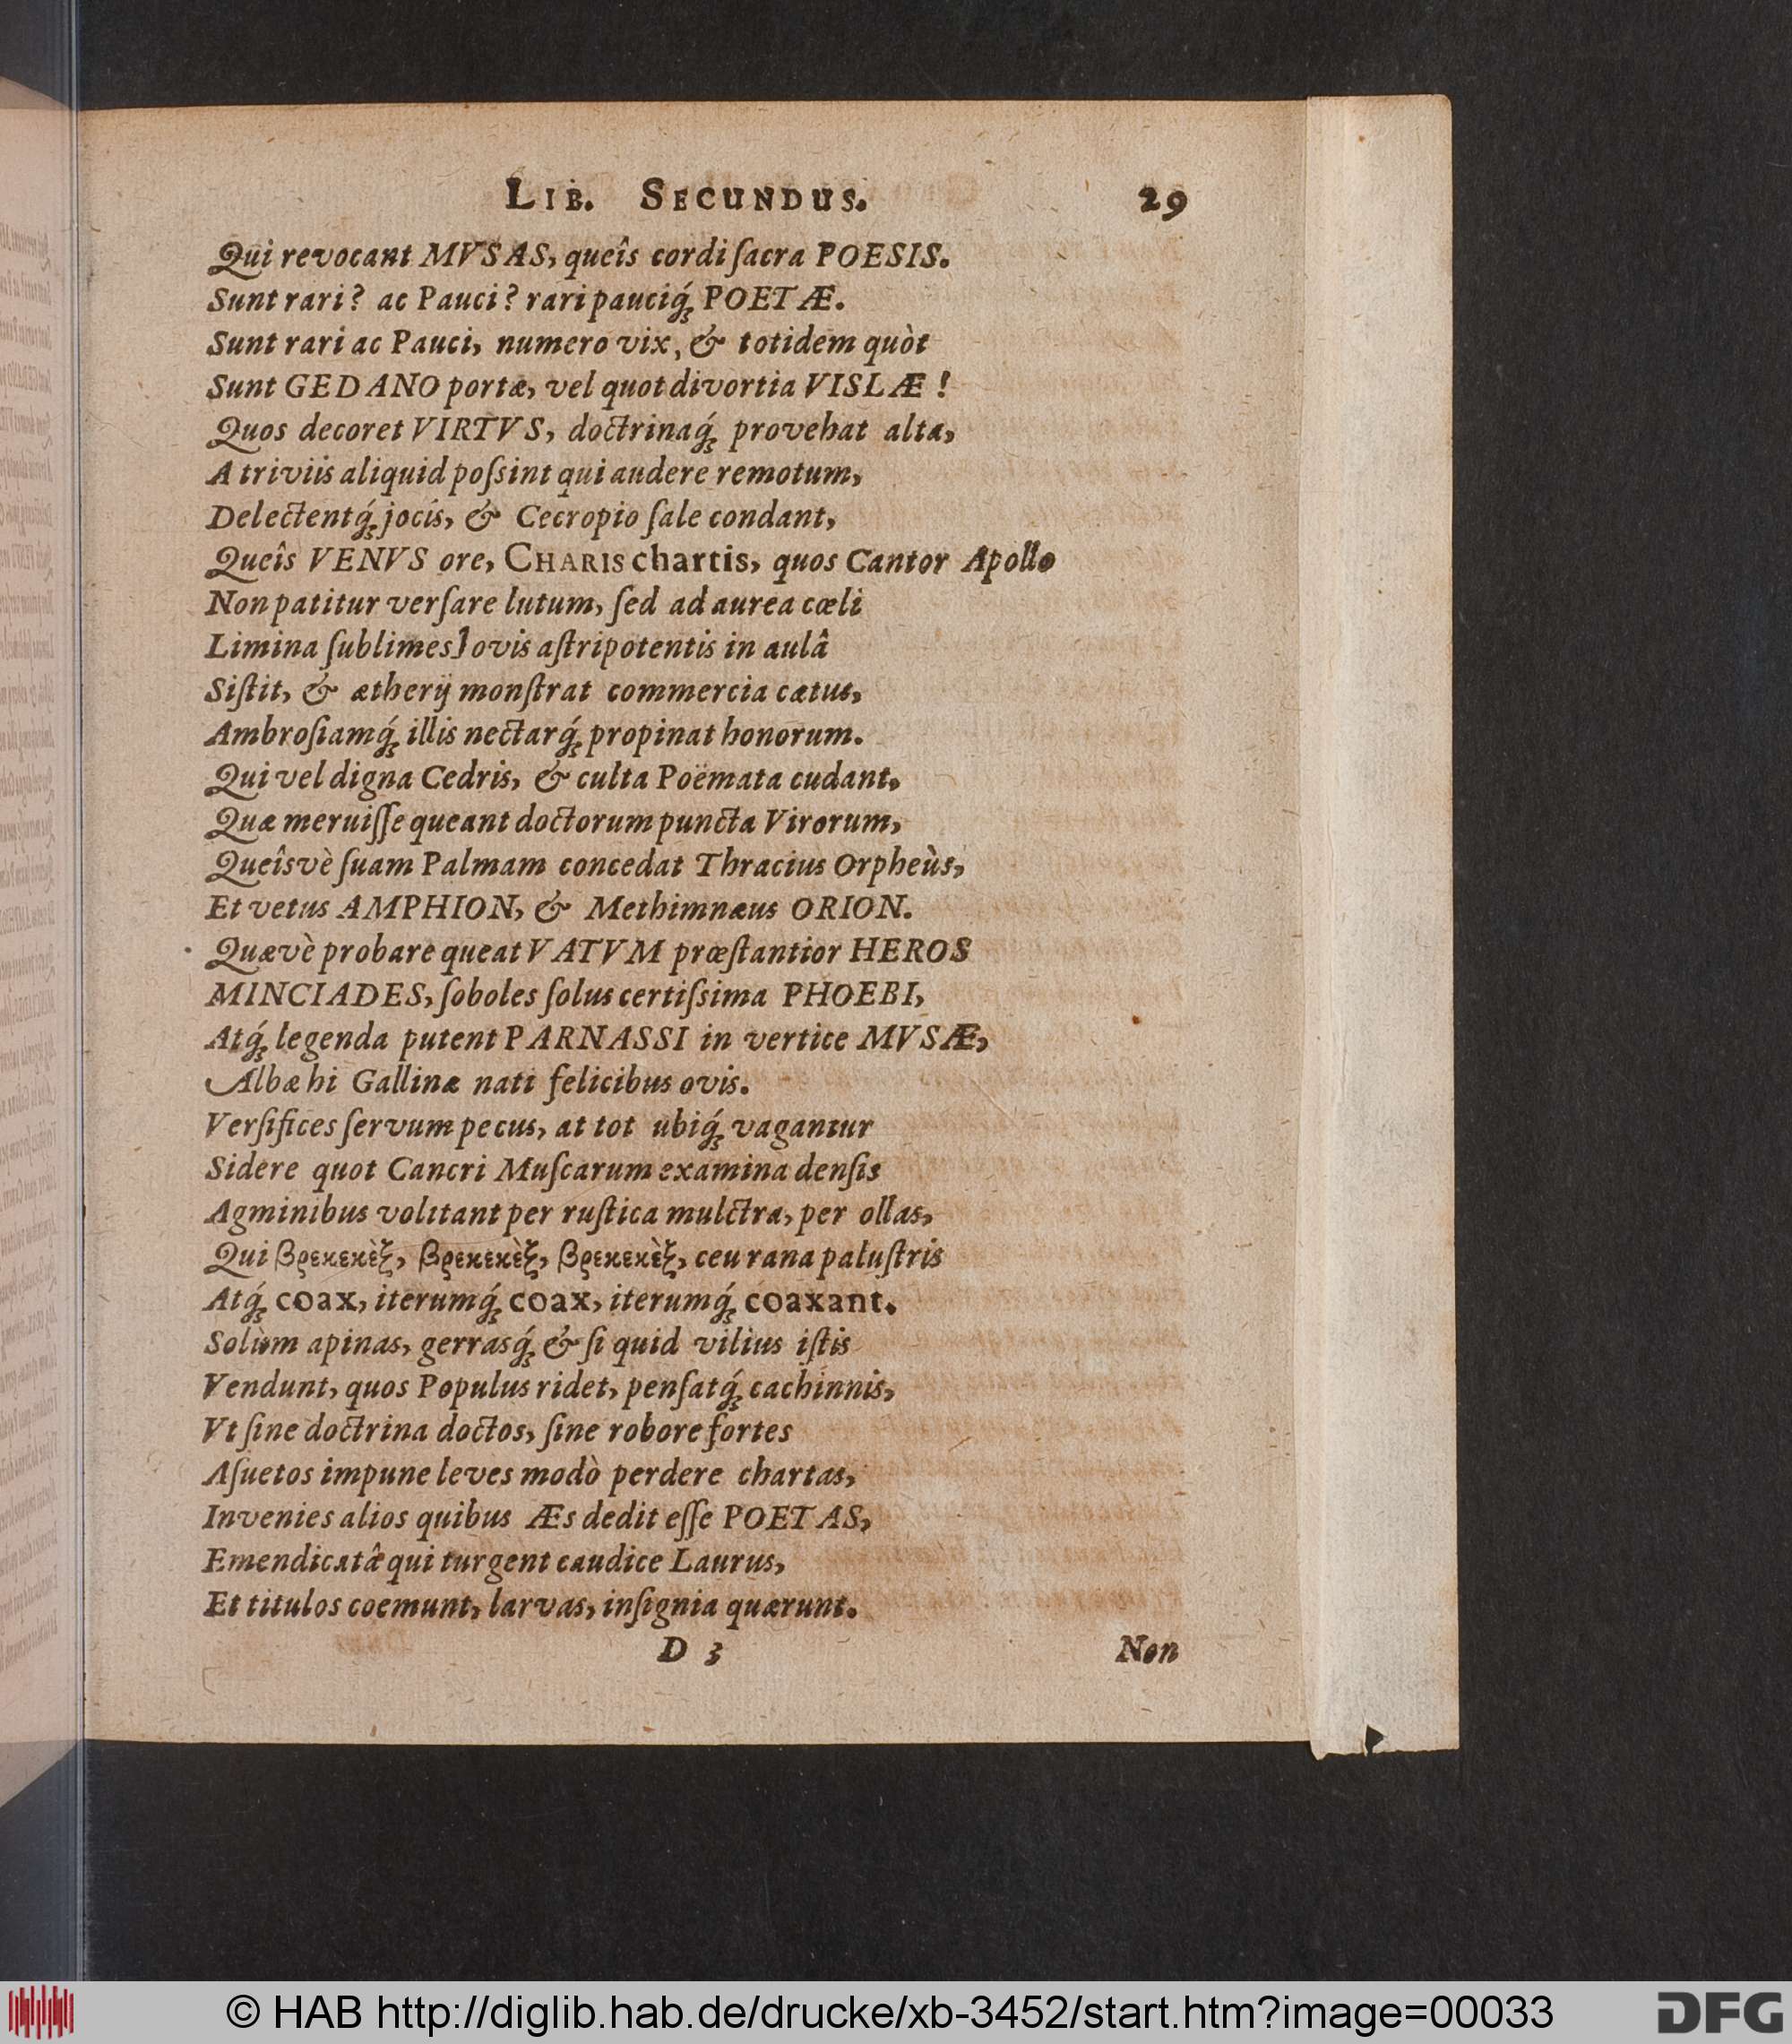 LIB. SECUNDUS. 29
Qui revocant MVSAS, queîs cordi ſacra POESIS.
Sunt rari? ac Pauci? rari pauciq́; POETÆ.
Sunt rari ac Pauci, numero vix, & totidem quòt
Sunt GEDANO portæ, vel quot divortia VISLÆ!
Quos decoret VIRTVS, doctrinaq́; provehat alta,
A triviis aliquid poſsint qui audere remotum,
Delectentq́; jocis, & Cecropio ſale condant,
Queîs VENVS ore, CHARIS chartis, quos Cantor Apollo
Non patitur verſare lutum, ſed ad aurea cœli
Limina ſublimes Jovis aſtripotentis in aulâ
Siſtit, & ætherij monſtrat commercia cætus,
Ambroſiamq́; illis nectarq́; propinat honorum.
Qui vel digna Cedris, & culta Poëmata cudant,
Quæ meruiſſe queant doctorum puncta Virorum,
Queîsvè ſuam Palmam concedat Thracius Orpheùs,
Et vetus AMPHION, & Methimnæus ORION.
Quævè probare queat VATVM præſtantior HEROS
MINCIADES, ſoboles ſolus certiſsima PHOEBI,
Atq́; legenda putent PARNASSI in vertice MVSÆ,
Albæ hi Gallinæ nati felicibus ovis.
Verſifices ſervum pecus, at tot ubiq́; vagantur
Sidere quot Cancri Muſcarum examina denſis
Agminibus volitant per ruſtica mulctra, per ollas,
Qui βρεκεκὲξ, βρεκεκὲξ, βρεκεκὲξ, ceu rana paluſtris
Atq́; coax, iterumq́; coax, iterumq́; coaxant.
Solùm apinas, gerrasq́; & ſi quid vilius iſtis
Vendunt, quos Populus ridet, penſatq́; cachinnis,
Vt ſine doctrina doctos, ſine robore fortes
Aſuetos impune leves modò perdere chartas,
Invenies alios quibus Æs dedit eſſe POETAS,
Emendicatâ qui turgent caudice Laurus,
Et titulos coemunt, larvas, inſignia quærunt.
D 3 Non
© HAB http://diglib.hab.de/drucke/xb-3452/start.htm?image=00033 DFG